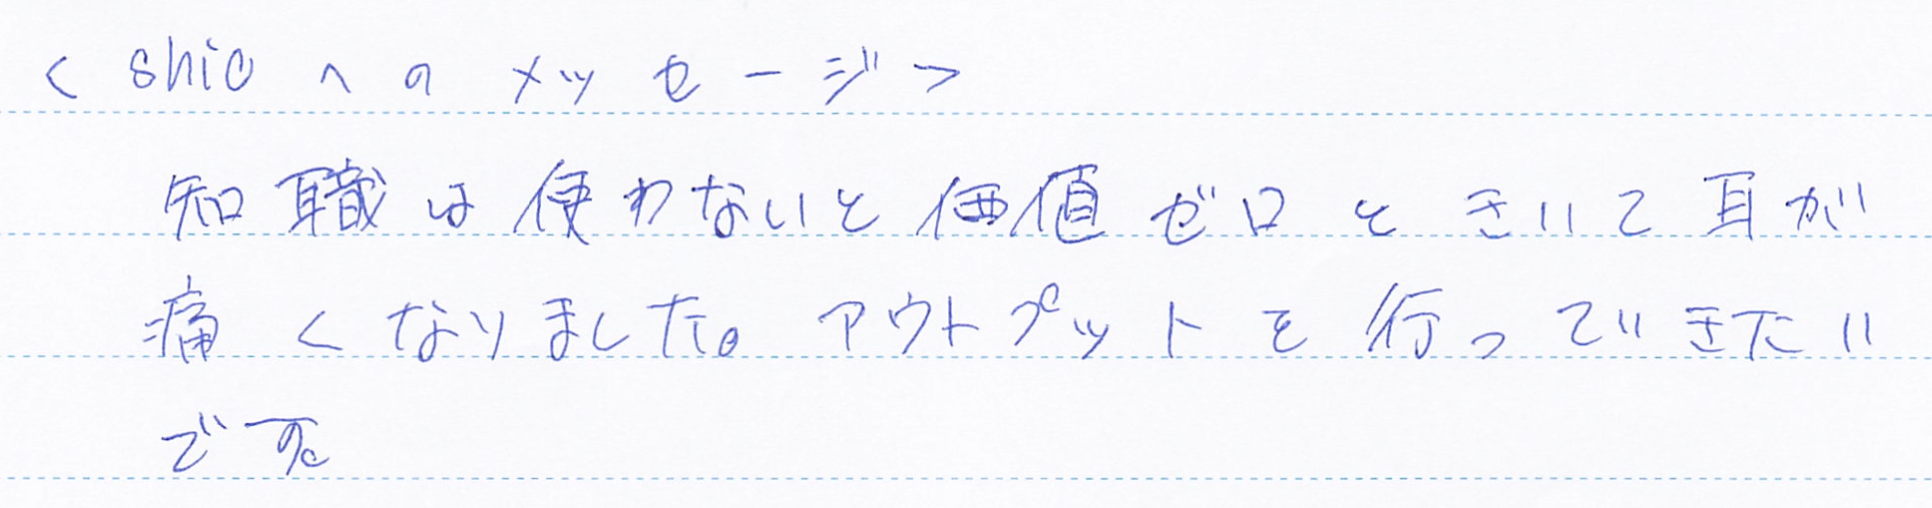 <shioへのメッセージ>
知職は使わないと価値ゼロときいて耳が
痛くなりました。アウトプットを行っていきたい
です。